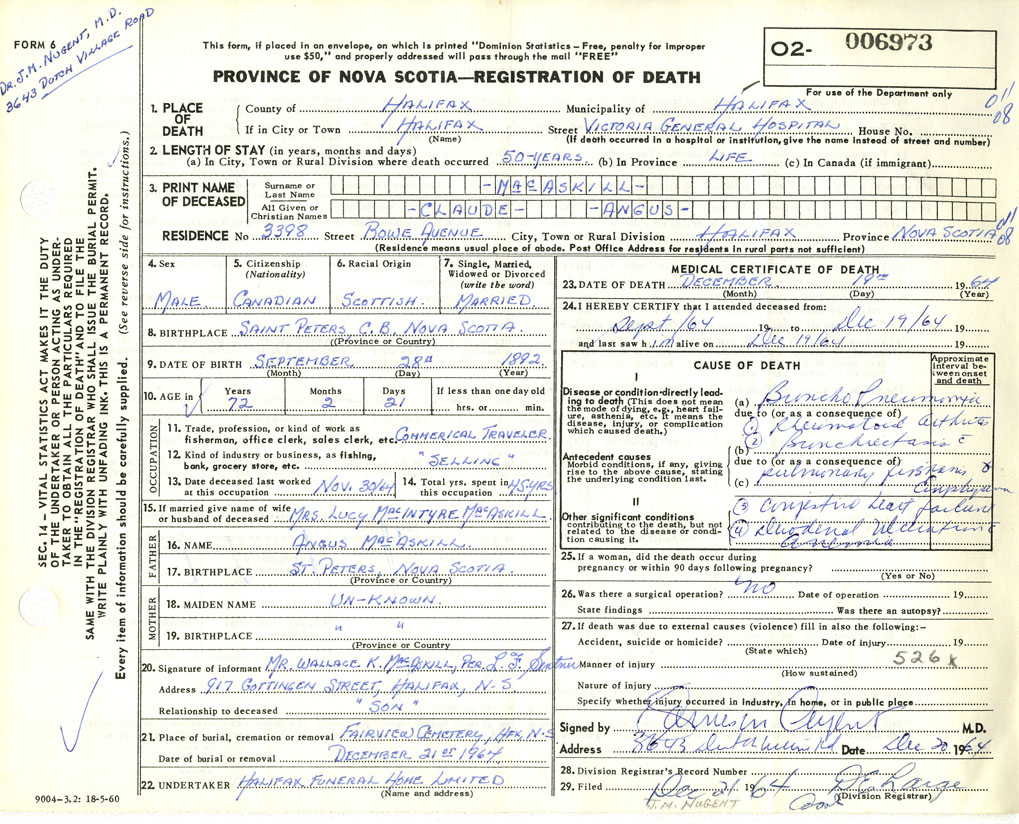 FORM 6
Dr. J.M. NUGENT, M.D.
3643 DUTCH VILLAGE ROAD
This form, if placed in an envelope, on which is printed "Dominion Statistics – Free, penalty for improper
use $50," and properly addressed will pass through the mail "FREE"
PROVINCE OF NOVA SCOTIA—REGISTRATION OF DEATH
O2- 006973
For use of the Department only
011
08
1. PLACE OF DEATH
County of HALIFAX Municipality of HALIFAX
If in City or Town HALIFAX Street VICTORIA GENERAL HOSPITAL House No.
(Name) (If death occurred in a hospital or institution, give the name instead of street and number)
2. LENGTH OF STAY (in years, months and days)
(a) In City, Town or Rural Division where death occurred 50-YEARS (b) In Province LIFE (c) In Canada (if immigrant)
3. PRINT NAME OF DECEASED
Surname or Last Name -MACASKILL-
All Given or Christian Names -CLAUDE- -ANGUS-
RESIDENCE No 3398 Street ROWE AVENUE City, Town or Rural Division HALIFAX Province NOVA SCOTIA
011
08
(Residence means usual place of abode. Post Office Address for residents in rural parts not sufficient)
4. Sex MALE
5. Citizenship (Nationality) CANADIAN
6. Racial Origin SCOTTISH
7. Single, Married, Widowed or Divorced (write the word) MARRIED
8. BIRTHPLACE SAINT PETERS C.B. NOVA SCOTIA
(Province or Country)
9. DATE OF BIRTH SEPTEMBER 28th 1892
(Month) (Day) (Year)
10. AGE in Years 72 Months 2 Days 21 If less than one day old hrs. or min.
OCCUPATION
11. Trade, profession, or kind of work as fisherman, office clerk, sales clerk, etc. COMMERICAL TRAVELER.
12. Kind of industry or business, as fishing, bank, grocery store, etc. "SELLING"
13. Date deceased last worked at this occupation NOV. 30/64
14. Total yrs. spent in this occupation 45 YRS
15. If married give name of wife or husband of deceased MRS. LUCY MACINTYRE MACASKILL.
FATHER
16. NAME ANGUS MACASKILL.
17. BIRTHPLACE ST. PETERS, NOVA SCOTIA.
(Province or Country)
MOTHER
18. MAIDEN NAME UN-KNOWN.
19. BIRTHPLACE " "
(Province or Country)
20. Signature of informant MR. WALLACE K. MACASKILL, PER. L. F.
Address 917 GOTTINGEN STREET, HALIFAX, N-S.
Relationship to deceased "SON"
21. Place of burial, cremation or removal FAIRVIEW CEMETERY, HFX, N-S
Date of burial or removal DECEMBER 21st 1964
22. UNDERTAKER HALIFAX FUNERAL HOME LIMITED
(Name and address)
9004–3.2: 18-5-60
MEDICAL CERTIFICATE OF DEATH
23. DATE OF DEATH DECEMBER 19th 1964
(Month) (Day) (Year)
24. I HEREBY CERTIFY that I attended deceased from:
Sept /64 19 to Dec 19/64 19
and last saw him alive on Dec 19/64 19
CAUSE OF DEATH
Approximate interval between onset and death
I
Disease or condition directly leading to death (This does not mean the mode of dying, e.g., heart failure, asthenia, etc. It means the disease, injury, or complication which caused death.)
(a) Broncho Pneumonia
due to (or as a consequence of)
1 Rheumatoid arthritis
(b) 2 Bronchiectasis c
Antecedent causes
Morbid conditions, if any, giving rise to the above cause, stating the underlying condition last.
due to (or as a consequence of)
(c) pulmonary fibrosis &
Emphysema
II
Other significant conditions
contributing to the death, but not related to the disease or condition causing it.
3 Congestive heart failure
4 Duodenal Ulceration
Anemia
25. If a woman, did the death occur during pregnancy or within 90 days following pregnancy?
(Yes or No)
26. Was there a surgical operation? NO Date of operation 19
State findings Was there an autopsy?
27. If death was due to external causes (violence) fill in also the following:–
Accident, suicide or homicide? Date of injury 19
(State which)
526x
Manner of injury
(How sustained)
Nature of injury
Specify whether injury occurred in Industry, in home, or in public place
Signed by Nugent M.D.
Address 3643 Dutch Village Rd Date Dec 20 1964
28. Division Registrar's Record Number
29. Filed Dec 21 1964
(Division Registrar)
J.M. NUGENT
SEC. 14 – VITAL STATISTICS ACT MAKES IT THE DUTY
OF THE UNDERTAKER OR PERSON ACTING AS UNDER-
TAKER TO OBTAIN ALL THE PARTICULARS REQUIRED
IN THE "REGISTRATION OF DEATH" AND TO FILE THE
SAME WITH THE DIVISION REGISTRAR WHO SHALL ISSUE THE BURIAL PERMIT.
WRITE PLAINLY WITH UNFADING INK. THIS IS A PERMANENT RECORD.
Every item of information should be carefully supplied. (See reverse side for instructions.)